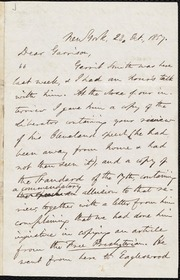 New York, 24 Oct. 1857.
Dear Garrison,
Gerrit Smith was here
last week, & I had an hour's talk
with him. At the close of our in-
terview I gave him a copy of the
Liberator containing your review
of his Cleveland speech (he had
been away from home & had
not then seen it) and a copy of
the Standard of the 17th, containing
a commendatory
allusion to that re-
view, together with a letter from him
complaining that we had done him
injustice in copying an article
from the Free Presbyterian. He
went from here to Eaglewood